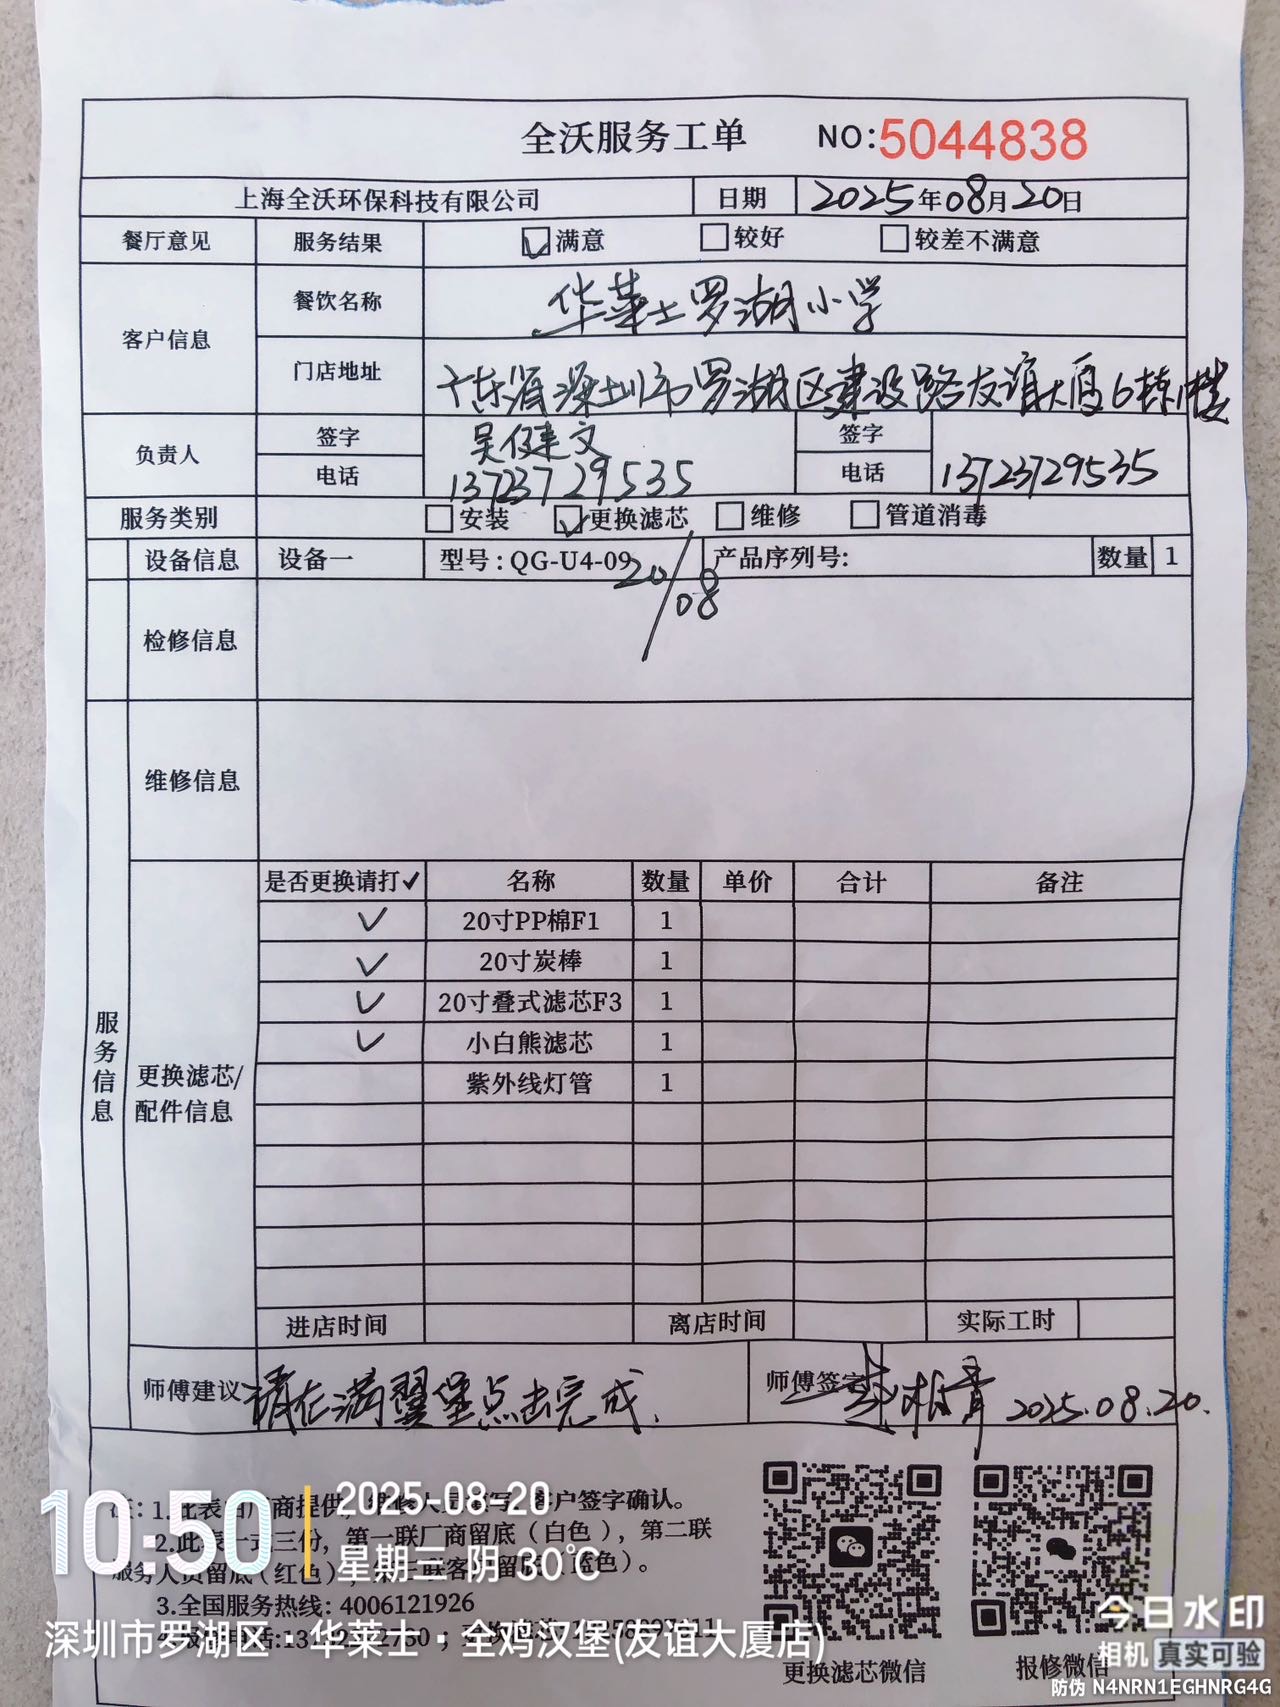 全沃服务工单 NO:5044838
上海全沃环保科技有限公司 日期 2025年08月20日
餐厅意见 服务结果 满意 较好 较差不满意
客户信息 餐饮名称 华莱士罗湖小学
门店地址 广东省深圳市罗湖区建设路友谊大厦6栋1楼
负责人 签字 吴健文 签字
电话 13723729535 电话 13723729535
服务类别 安装 更换滤芯 维修 管道消毒
设备信息 设备一 型号:QG-U4-09 产品序列号: 数量 1
20/08
检修信息
维修信息
服务信息
更换滤芯/配件信息
是否更换请打✓ 名称 数量 单价 合计 备注
✓ 20寸PP棉F1 1
✓ 20寸炭棒 1
✓ 20寸叠式滤芯F3 1
✓ 小白熊滤芯 1
紫外线灯管 1
进店时间 离店时间 实际工时
师傅建议 请在满翼堡点击完成. 师傅签字 柏青 2025.08.20.
注: 1.此表由厂商提供, 客户签字确认。
2.此表一式三份, 第一联厂商留底(白色), 第二联
服务人员留底(红色), 第三联客户留底(蓝色)。
3.全国服务热线: 4006121926
更换滤芯微信 报修微信
10:50 2025-08-20
星期三 阴 30℃
深圳市罗湖区·华莱士·全鸡汉堡(友谊大厦店)
今日水印
相机 真实可验
防伪 N4NRN1EGHNRG4G